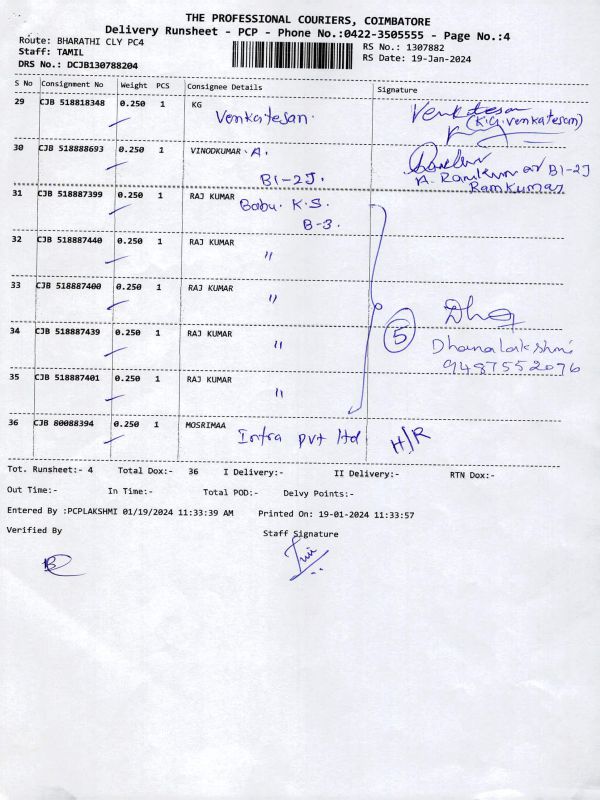 THE PROFESSIONAL COURIERS, COIMBATORE
Delivery Runsheet - PCP - Phone No.:0422-3505555 - Page No.:4
Route: BHARATHI CLY PC4
RS No.: 1307882
Staff: TAMIL
RS Date: 19-Jan-2024
DRS No.: DCJB130788204
S No Consignment No Weight PCS Consignee Details Signature
29 CJB 518818348 0.250 1 KG
Venkatesan. Venkatesan
(K.G.venkatesan)
30 CJB 518888693 0.250 1 VINODKUMAR .A.
B1-2J. A. Ramkumar B1-2J
Ramkumar
31 CJB 518887399 0.250 1 RAJ KUMAR
Babu. K.S.
B-3.
32 CJB 518887440 0.250 1 RAJ KUMAR
"
33 CJB 518887400 0.250 1 RAJ KUMAR
"
34 CJB 518887439 0.250 1 RAJ KUMAR
"
5
Dhanalakshmi
9487552076
35 CJB 518887401 0.250 1 RAJ KUMAR
"
36 CJB 80088394 0.250 1 MOSRIMAA
Infra pvt ltd H/R
Tot. Runsheet:- 4 Total Dox:- 36 I Delivery:- II Delivery:- RTN Dox:-
Out Time:- In Time:- Total POD:- Delvy Points:-
Entered By :PCPLAKSHMI 01/19/2024 11:33:39 AM Printed On: 19-01-2024 11:33:57
Verified By Staff Signature